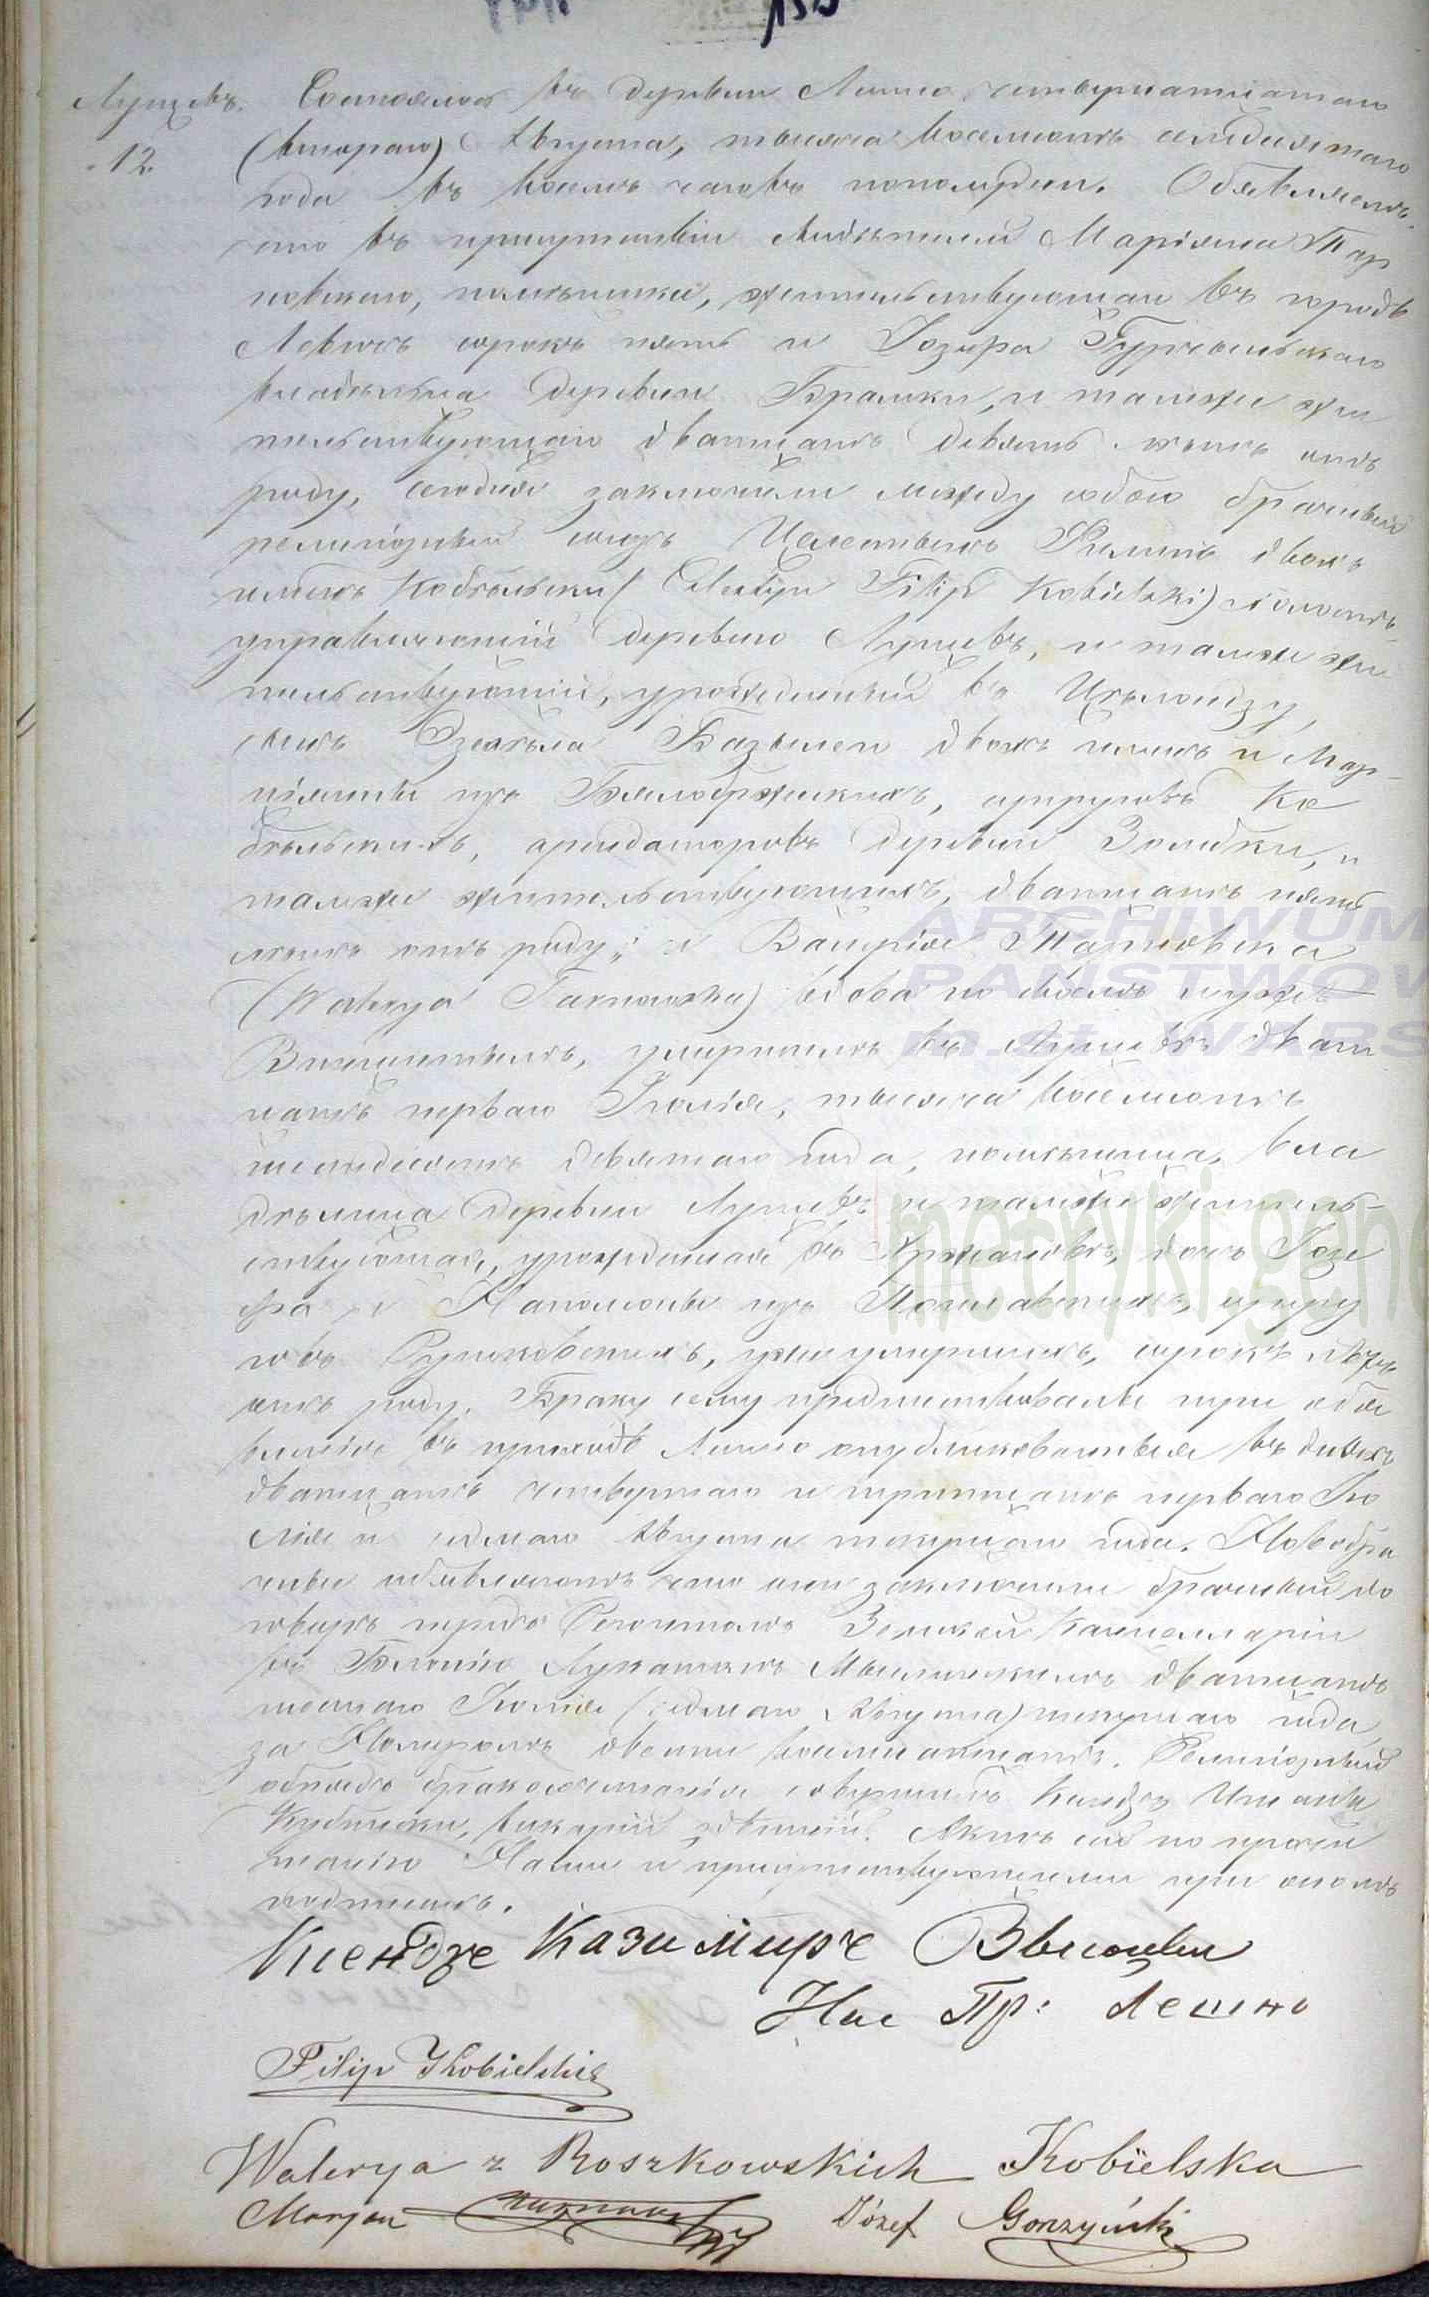 133
Луще въ. Состоялось въ деревни Лешно четырнатцатаго
12. (втораго) Августа, тысяча восемсотъ семдесятаго
года въ часовъ пополудни. Объявляемъ
что въ присутствіи свидѣтелей Маріяна Тар
новскаго, помѣщика, жительствующаго въ городѣ
Ловичъ сорокъ пять и Іозефа Гурчинскаго
владѣльца деревни Брамки, и тамже жи
тельствующаго дватцать девять лѣтъ отъ
роду, сегодня заключили между собою брачный
религіозный союзъ Целестынъ Филипъ двохъ
именъ Кобѣльски (Celestyn Filip Kobielski) холостъ,
управляющій деревнею Лущевъ, и тамже жи
тельствующій, урожденный въ
сынъ Базылего двохъ именъ и Мар-
ціянны изъ Бялобржескихъ, супруговъ Ко
бѣльскихъ, арендаторовъ деревни Золибки, и
тамже жительствующихъ, дватцать пять
лѣтъ отъ роду; и Валерія Тарновска
(Walerya Tarnowska) вдова по своемъ мужѣ
Викентымъ, умершемъ въ Лущевъ дват
цать перваго Іюлія, тысяча восемсотъ
шестдесятъ девятаго года, помѣщица, вла
дѣлица деревни Лущевъ и тамже житель-
ствующая, урожденная въ дочъ Іозе
фа и изъ супру
говъ Рошковскихъ, уже умершихъ, сорокъ
отъ роду. Браку сему предшествовали три объя
вленія въ приходѣ Лешно опубликованныя въ дняхъ
дватцать четвертаго и тритцать перваго Ію
лія и седмаго Августа текущаго года. Новобра
чные объявляютъ что они заключили брачный до
говоръ передъ Регентомъ Земской Канцелляріи
въ Блоню дватцать
шестаго Іюлия (седмаго Августа) текущаго года
за Номеромъ двѣсти восемнатцать. Религіозный
обрядъ бракосочетанія совершилъ Ксендзъ Игнатій
викарій здѣшній. Актъ сей по прочи
танію Нами и присутствующими при ономъ
подписанъ.
Ксендзъ Казимиръ
Нас Пр: Лешно
Filip Kobielski
Walerya z Roszkowskich Kobielska
Maryan Tarnowski Józef Gorzyński
ARCHIWUM
PAŃSTWOW
m.st. WARS
metryki.gene